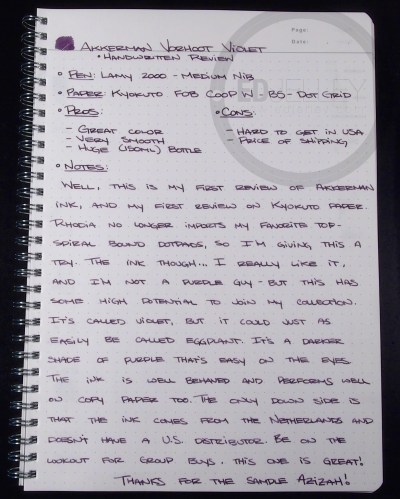 Page:
Akkerman Vorhoot Violet
Date:
• Handwritten Review
• Pen: Lamy 2000 - Medium Nib
• Paper: Kyokuto FOB COOP W - B5 - Dot Grid
• Pros: • Cons:
- Great color - Hard to get in USA
- Very smooth - Price of shipping
- Huge (150ml) bottle
• Notes:
Well, this is my first review of Akkerman
ink, and my first review on Kyokuto paper.
Rhodia no longer imports my favorite top-
spiral bound dotpads, so I'm giving this a
try. The ink though... I really like it,
and I'm not a purple guy - but this has
some high potential to join my collection.
It's called violet, but it could just as
easily be called eggplant. It's a darker
shade of purple that's easy on the eyes
The ink is well behaved and performs well
on copy paper too. The only down side is
that the ink comes from the Netherlands and
doesn't have a U.S. distributor. Be on the
lookout for group buys, this one is great!
Thanks for the sample Azizah!